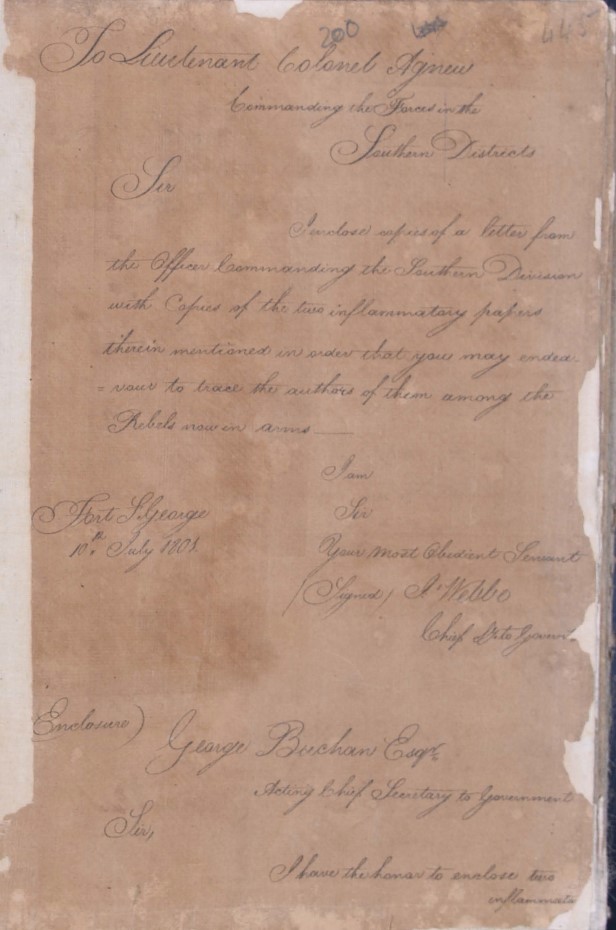 200
445
To Lieutenant Colonel Agnew
Commanding the Forces in the
Southern Districts
Sir
I enclose copies of a letter from
the Officer Commanding the Southern Division
with Copies of the two inflammatory papers
therein mentioned in order that you may endea
= vour to trace the authors of them among the
Rebels now in arms —
I am
Sir
Fort St. George
10th July 1801.
Your most Obedient Servant
(Signed) J. Webbe
Chief to Govern
Enclosure)
George Buchan Esqr.
Acting Chief Secretary to Government
Sir,
I have the honor to enclose two
inflammato